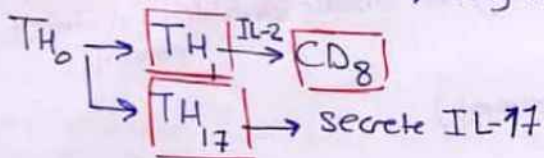 TH₀ → TH₁ IL-2→ CD₈
TH₁₇ → secrete IL-17